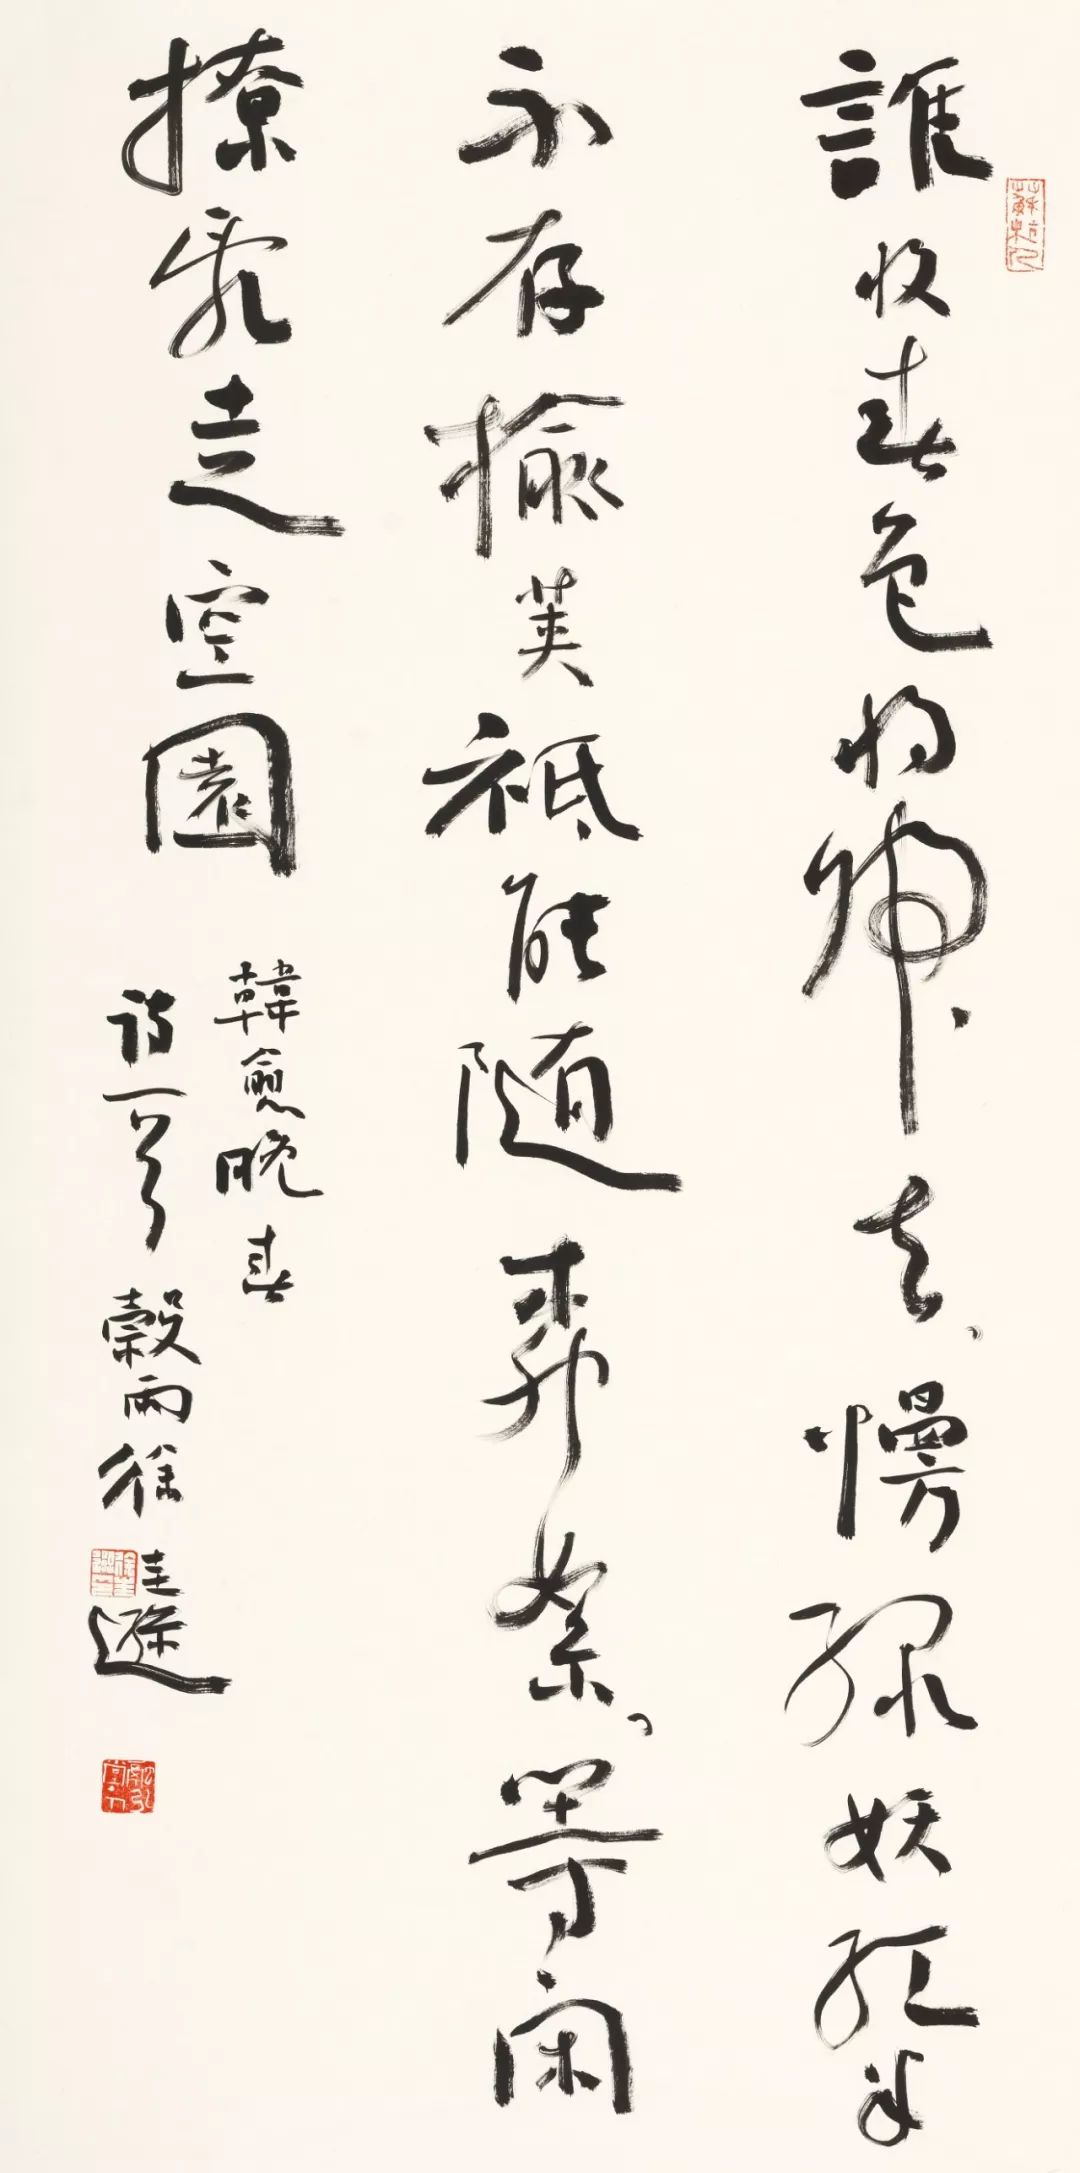 誰收春色將歸去慢綠妖紅半
不存榆莢祗能随柳絮等閑
撩亂走空園
韓愈晚春
詩一首穀雨徐圭遜